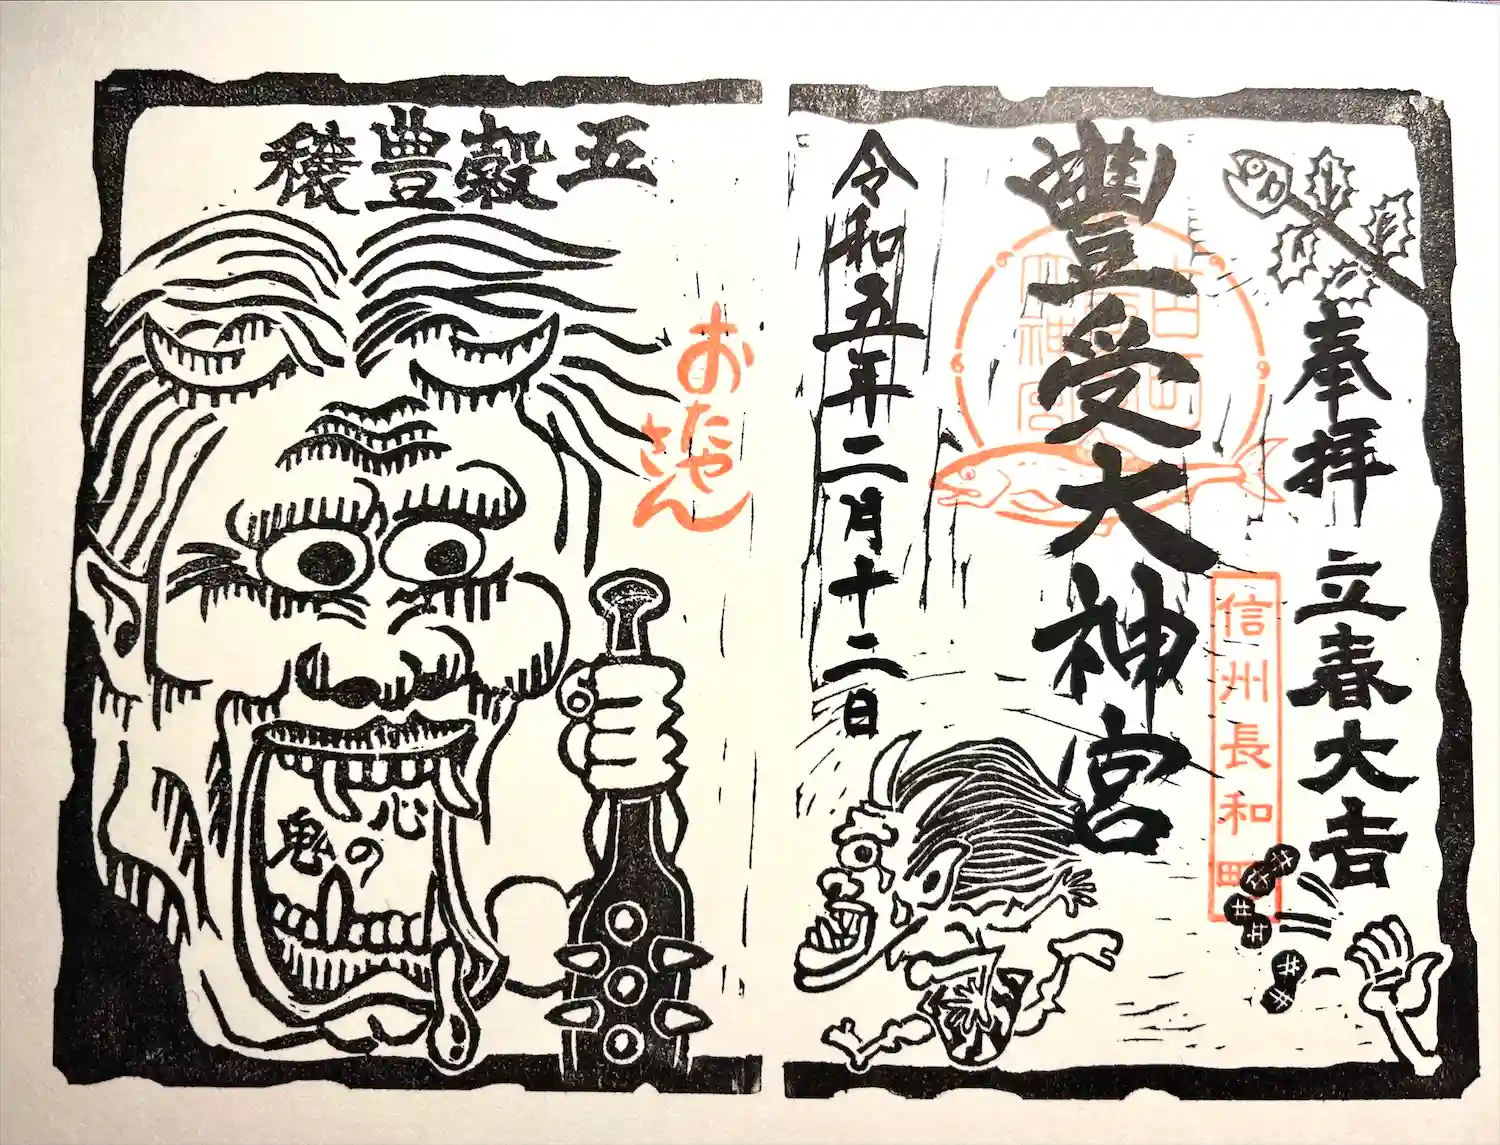 奉拝 立春大吉
信州長和町
豊受大神宮
古町
令和五年二月十二日
五穀豊穣
おたや
さん
心の
鬼